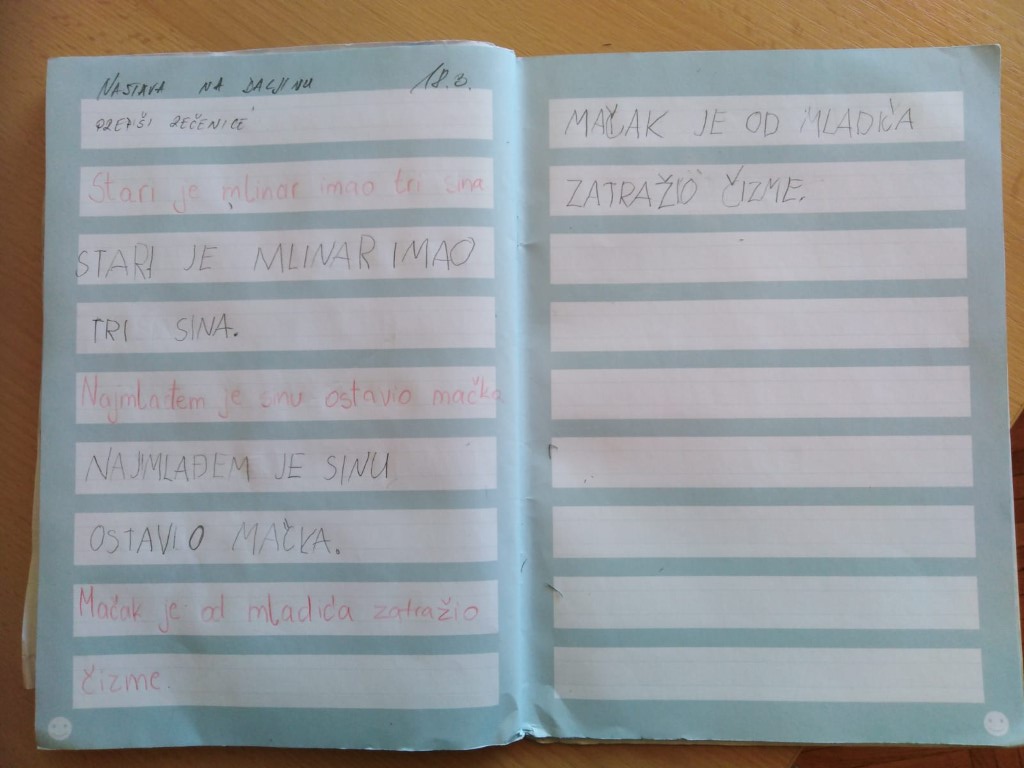 NASTAVA NA DALJINU 18.3.
PREPIŠI REČENICE
Stari je mlinar imao tri sina
STARI JE MLINAR IMAO
TRI SINA.
Najmlađem je sinu ostavio mačka
NAJMLAĐEM JE SINU
OSTAVIO MAČKA.
Mačak je od mladića zatražio
čizme.
MAČAK JE OD MLADIĆA
ZATRAŽIO ČIZME.